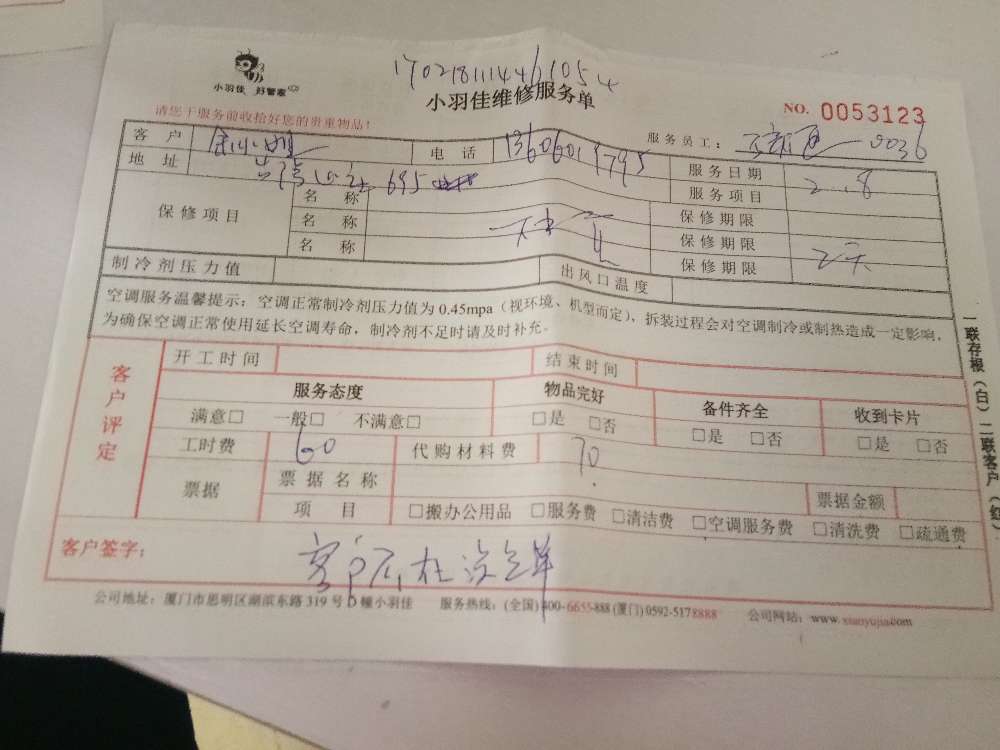 小羽佳 好管家
小羽佳维修服务单
NO. 0053123
请您于服务前收拾好您的贵重物品！
服务员工： 0036
客户 电话 13606019795 服务日期 2.8
地址 695 服务项目
保修项目 名称 保修期限
名称 保修期限
名称 保修期限 2天
制冷剂压力值 出风口温度
空调服务温馨提示：空调正常制冷剂压力值为 0.45mpa（视环境、机型而定），拆装过程会对空调制冷或制热造成一定影响，
为确保空调正常使用延长空调寿命，制冷剂不足时请及时补充。
客户评定
开工时间 结束时间
服务态度 物品完好 备件齐全 收到卡片
满意□ 一般□ 不满意□ □是 □否 □是 □否 □是 □否
工时费 60 代购材料费 70
票据 票据名称 票据金额
项目 □搬办公用品 □服务费 □清洁费 □空调服务费 □清洗费 □疏通费
客户签字： 客户不在没签单
公司地址：厦门市思明区湖滨东路 319 号 D 幢小羽佳 服务热线：(全国) 400-6655-888 (厦门) 0592-5178888 公司网站：www.xiaoyujia.com
一联存根（白）二联客户（红）